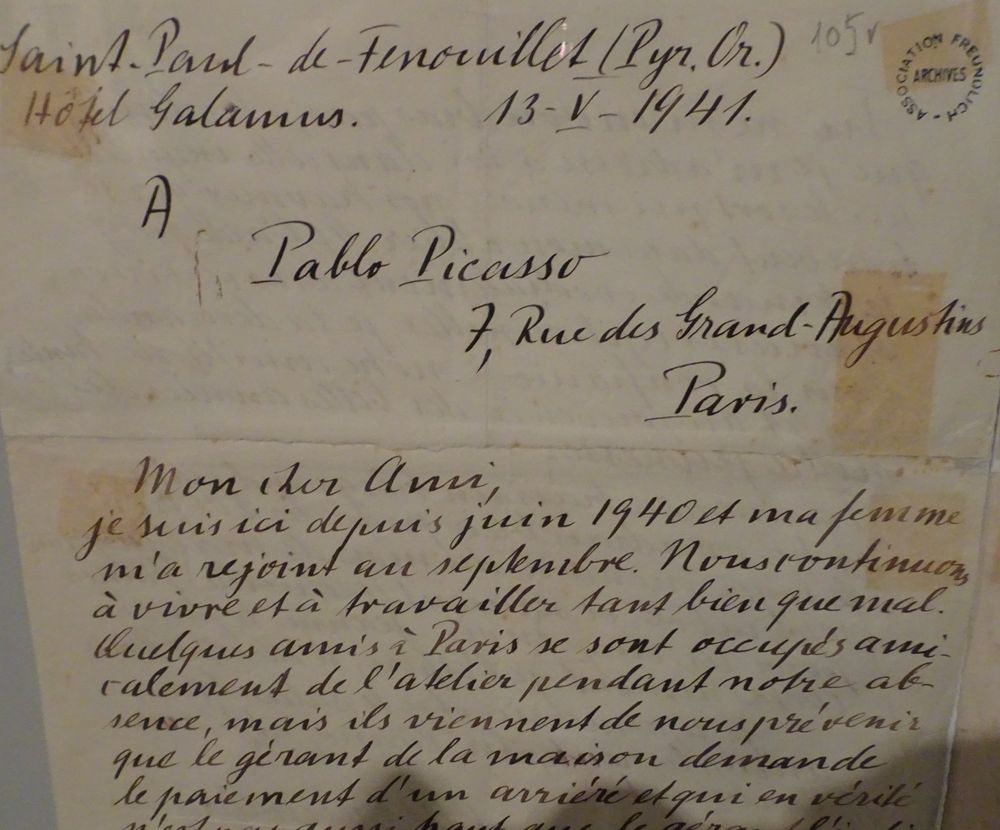 Saint-Paul-de-Fenouillet (Pyr. Or.)
105v
ASSOCIATION FREUNDLICH
ARCHIVES
Hôtel Galamus. 13-V-1941.
A
Pablo Picasso
7, Rue des Grand-Augustins
Paris.
Mon cher Ami,
je suis ici depuis juin 1940 et ma femme
m'a rejoint au septembre. Nous continuons
à vivre et à travailler tant bien que mal.
Quelques amis à Paris se sont occupés ami-
calement de l'atelier pendant notre ab-
sence, mais ils viennent de nous prévenir
que le gérant de la maison demande
le paiement d'un arriéré et qui en vérité
n'est pas aussi haut que le gérant